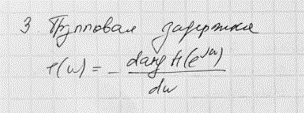 3 Групповая задержка
τ(ω) = - d arg H(e^jω) / dω